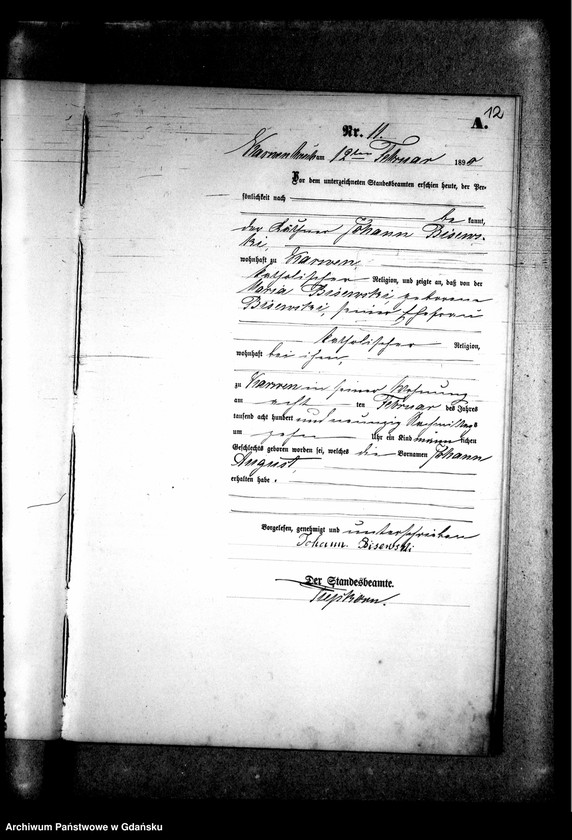 12
A.
Nr. 11.
am 12ten Februar 1890
Vor dem unterzeichneten Standesbeamten erschien heute, der Per-
sönlichkeit nach
be kannt,
der Käthner Johann Bisews-
ki,
wohnhaft zu Karwen,
katholischer Religion, und zeigte an, daß von der
Maria Bisewski, geborene
Bisewski, seiner Ehefrau
katholischer Religion,
wohnhaft bei ihm,
zu Karwen in seiner Wohnung
am acht ten Februar des Jahres
tausend acht hundert und neunzig Nachmittags
um zehn Uhr ein Kind männ lichen
Geschlechts geboren worden sei, welches die Vornamen Johann
August,
erhalten habe.
Vorgelesen, genehmigt und unterschrieben
Johann Bisewski
Der Standesbeamte.
Archiwum Państwowe w Gdańsku